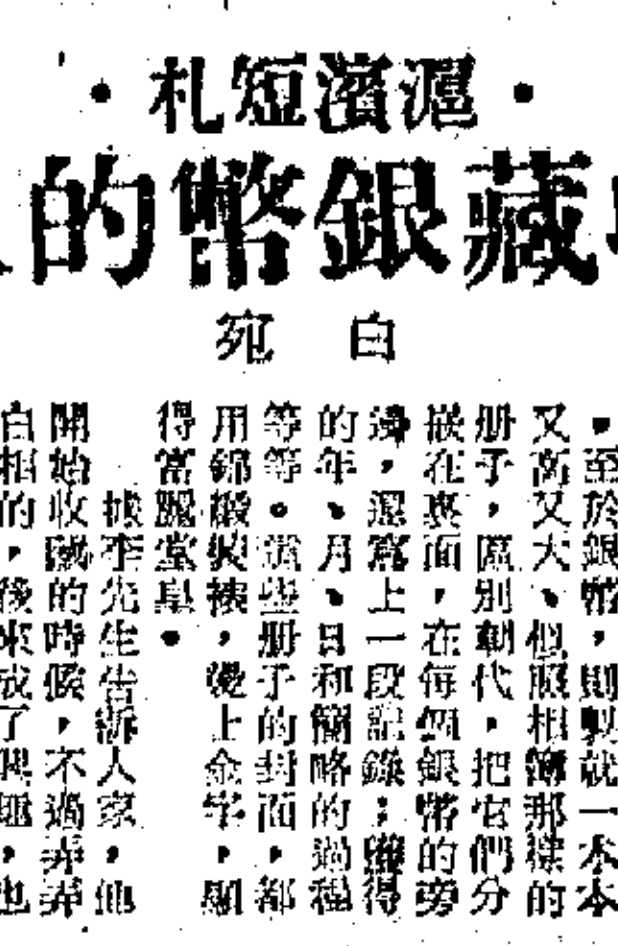 ·滬濱短札·
藏銀幣的
白宛
。至於銀幣，則製就一本本
又高又大、似照相簿那樣的
册子，區別朝代，把它們分
嵌在裏面，在每個銀幣的旁
邊，還寫上一段記錄；購得
的年、月、日和簡略的過程
等等。這些册子的封面，都
用錦緞裝裱，燙上金字，顯
得富麗堂皇。
據李先生告訴人家，他
開始收藏的時候，不過弄弄
白相的，後來成了興趣，也